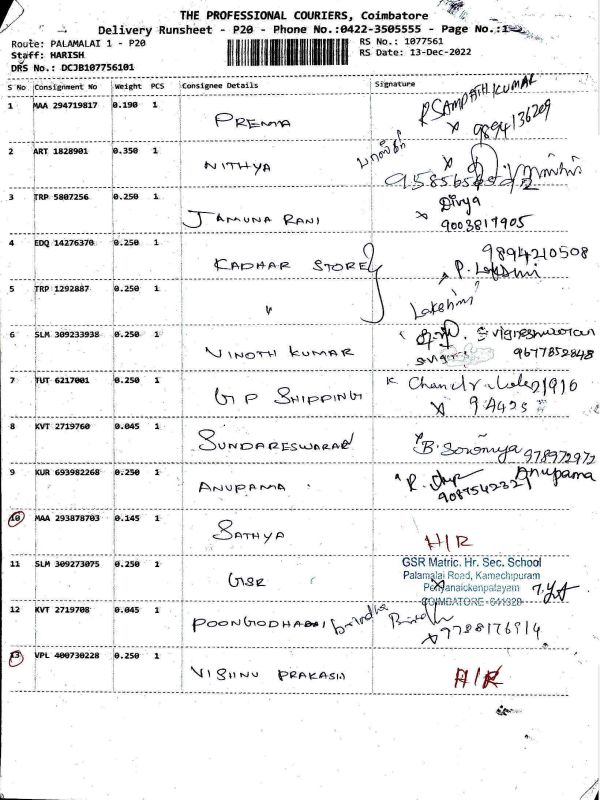 THE PROFESSIONAL COURIERS, Coimbatore
Delivery Runsheet - P20 - Phone No.:0422-3505555 - Page No.:1
Route: PALAMALAI 1 - P20
RS No.: 1077561
Staff: HARISH
RS Date: 13-Dec-2022
DRS No.: DCJB107756101
S No Consignment No Weight PCS Consignee Details Signature
1 MAA 294719817 0.190 1 PREMA R SAMPATH KUMAR
x 9894136209
2 ART 1828901 0.350 1 NITHYA
3 TRP 5807256 0.250 1 JAMUNA RANI x Divya
9003817905
4 EDQ 14276370 0.250 1 KADHAR STORE 9894210508
P. Lakshmi
5 TRP 1292887 0.250 1 " Lakshmi
6 SLM 309233938 0.250 1 VINOTH KUMAR
9677852848
7 TUT 6217001 0.250 1 G P SHIPPING
8 KVT 2719760 0.045 1 SUNDARESWARAN B. Soromya 978972972
9 KUR 693982268 0.250 1 ANUPAMA Anupama
10 MAA 293878703 0.145 1 SATHYA H/R
11 SLM 309273075 0.250 1 GSR GSR Matric. Hr. Sec. School
Palamalai Road, Kamechipuram
Periyanaickenpalayam
COIMBATORE - 641020
12 KVT 2719708 0.045 1 brindha
x 9788176914
13 VPL 400730228 0.250 1 VISHNU PRAKASH H/R